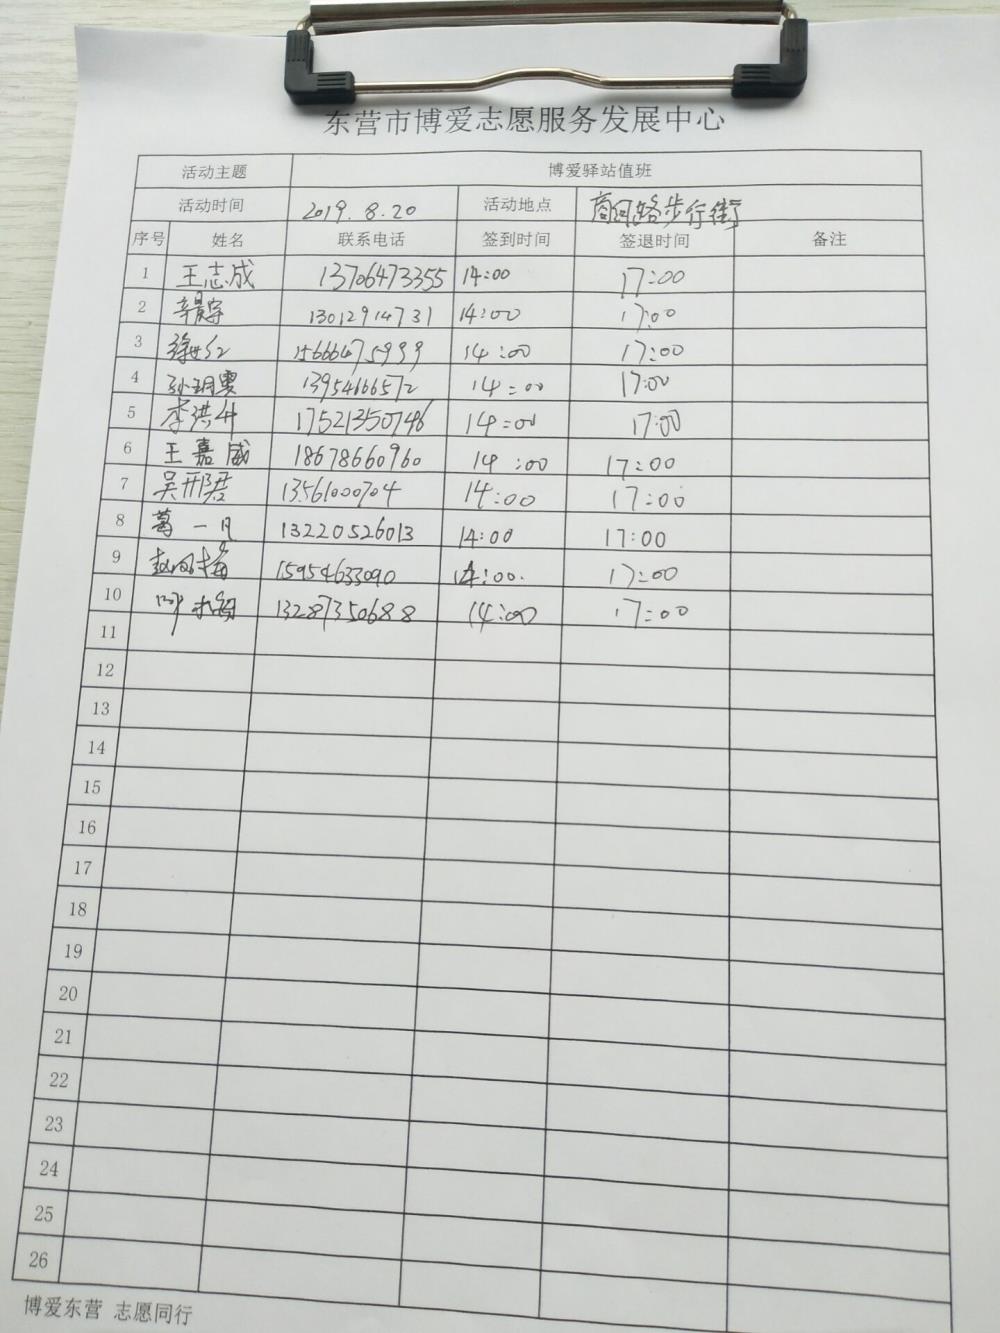 东营市博爱志愿服务发展中心
活动主题 博爱驿站值班
活动时间 2019.8.20 活动地点 商河路步行街
序号 姓名 联系电话 签到时间 签退时间 备注
1 王志成 13706473355 14:00 17:00
2 13012914731 14:00 17:00
3 15666475999 14:00 17:00
4 13954666572 14:00 17:00
5 李洪升 17521350746 14:00 17:00
6 王嘉威 18678660960 14:00 17:00
7 吴邢珺 13561000704 14:00 17:00
8 葛一凡 13220526013 14:00 17:00
9 赵凤梅 15954633090 14:00. 17:00
10 13287350688 14:00 17:00
11
12
13
14
15
16
17
18
19
20
21
22
23
24
25
26
博爱东营 志愿同行